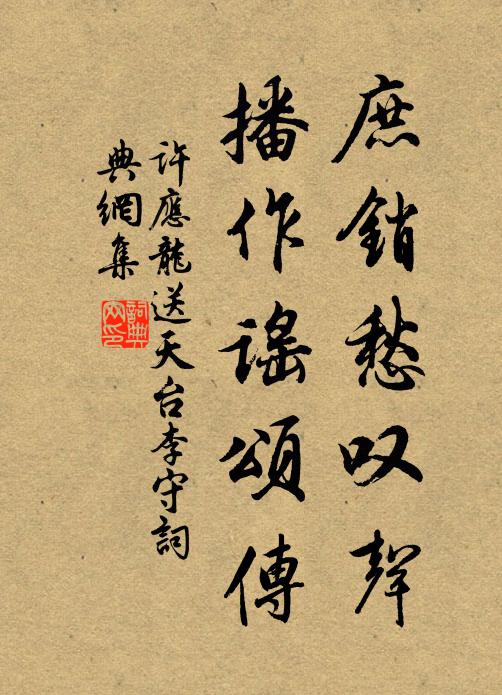 庶銷愁叹聲
播作謠頌傳
許應龍送天台李守詞
典網集
詞典網印